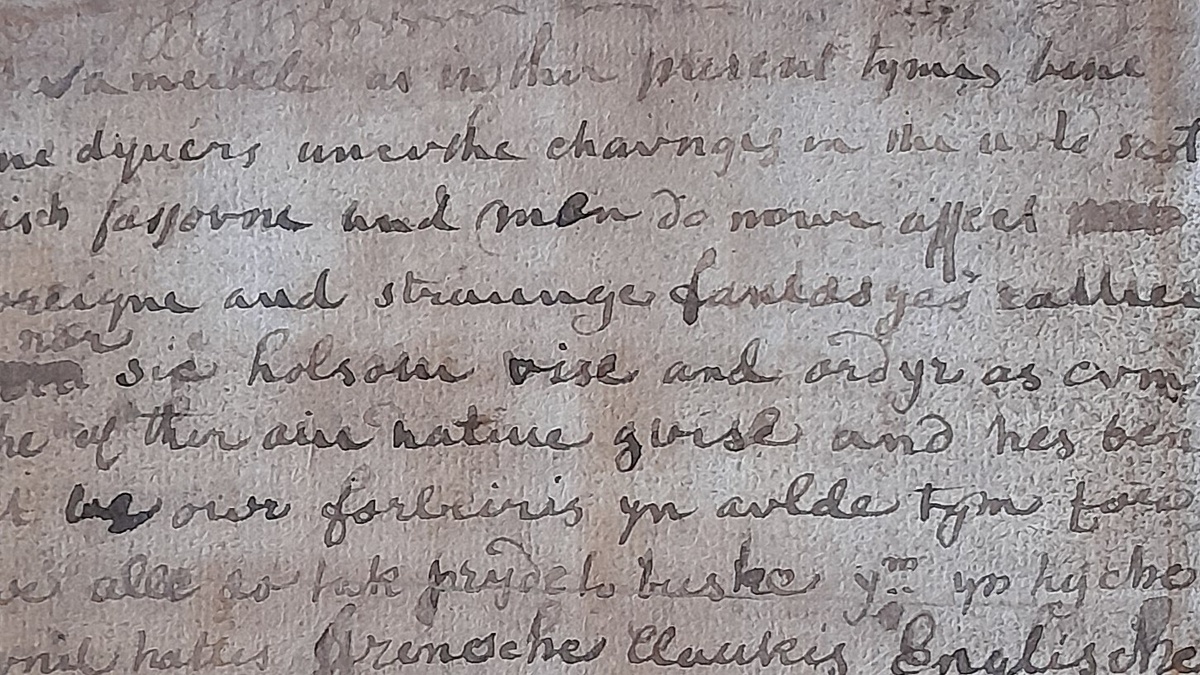 as in thir present tymes bene
dyuers uncvthe chavnges in the avld scot
isch fassovne and men do nowe affect
and stravnge fantasyes rather
nor
sic holsom vise and ordyr as cvm
of ther ain natiue gwise and hes ben
our forbeiris yn avlde tym
alle so tak pryde to buske ym yn hyche
hattis Frensche Claukis Englische